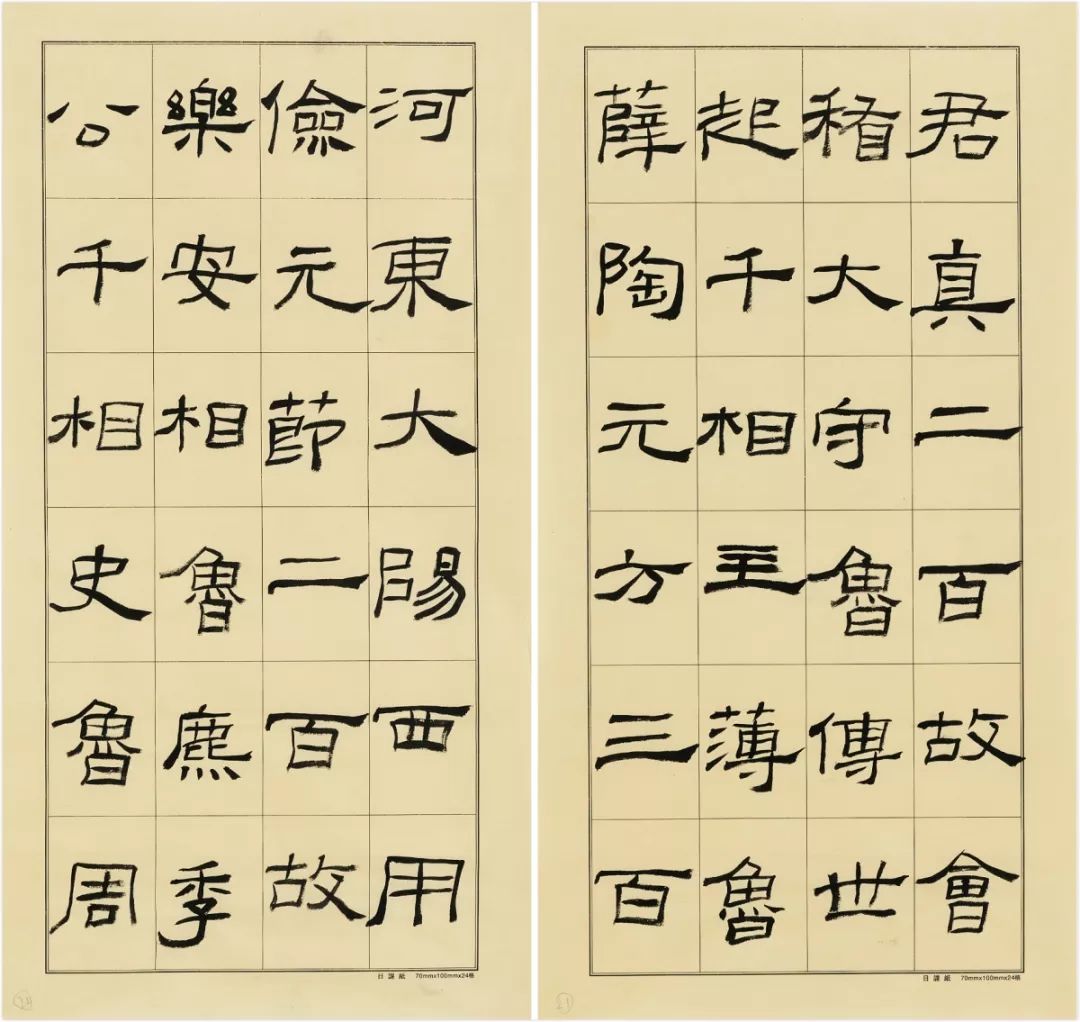 君真二百故會
稽大守魯傳世
起千相主薄魯
薛陶元方三百
日課紙 70mmx100mmx24格
21
河東大陽西用
儉元節二百故
樂安相魯麃季
公千相史魯周
日課紙 70mmx100mmx24格
24